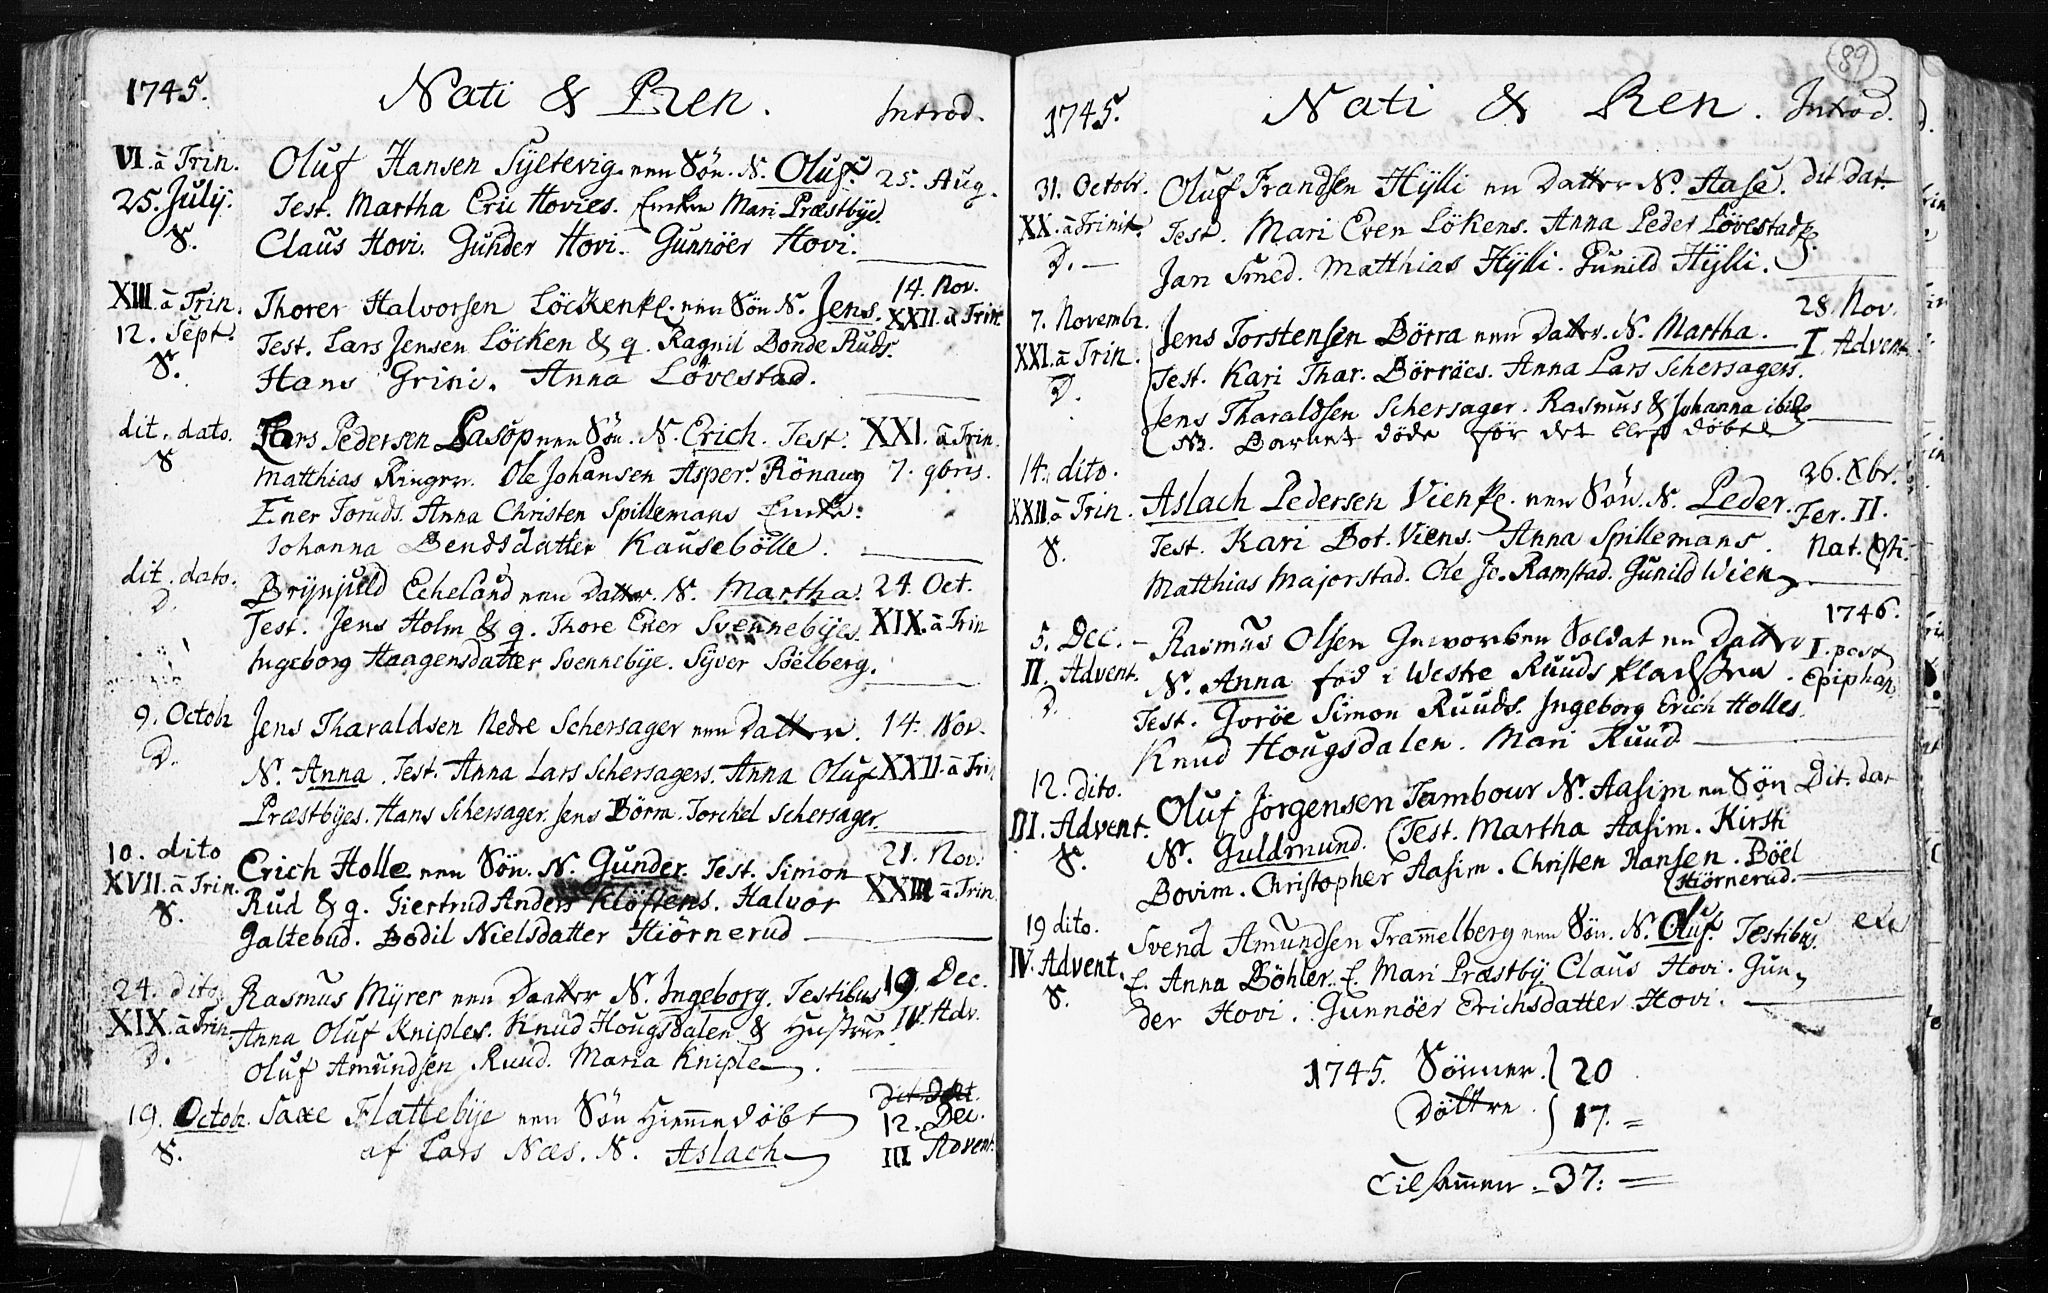 1745. Nati & Ren. Introd.
VI. à Trin. Oluf Hansen Syltevig een Søn. N. Oluf. 25. Aug.
25. Julij. Test. Martha Eric Hovies. Mari Præstbÿe.
S. Claus Hovi. Gunder Hovi. Gunnöer Hovi.
XIII. à Trin. Thorer Halvorsen Löcken een Søn N. Jens. 14. Nov.
12. Sept. Test. Lars Jensen Löcken & q. Ragnil Bonde Ruds. XXII. à Trin.
S. Hans Grini. Anna Lövestad.
dit. dato. Lars Pedersen Lasop een Søn. N. Erich. Test. XXI. à Trin.
S Matthias Ringer. Ole Johansen Asper. Rönaug 7. 9bris.
Ener Toruds. Anna Christen Spillemans Encke:
Johanna Bendsdatter Kausebölle.
dit. dato. Brÿnjuld Echeland een Datter. N. Martha. 24. Oct.
D. Test. Jens Holm & q. Thore Ener Svennebÿes. XIX. à Trin
Ingeborg Haagensdatter Svennebÿe. Syver Söelberg.
9. Octobr Jens Tharaldsen Nedre Schersager een Datter. 14. Nov.
D. N. Anna. Test. Anna Lars Schersagers. Anna Oluf XXII. à Trin
Præstbÿes. Hans Schersager. Jens Börra. Torckel Schersager.
10. dito Erich Holle een Søn. N. Gunder. Test. Simon 21. Nov.
XVII. à Trin. Rud & q. Giertrud Anders Klöftens. Halvor XXIII. à Trin.
S. Galtebud. Bodil Nielsdatter Hiörnerud
24. dito Rasmus Mÿrer een Daatter N. Ingeborg. Testibus 19. Dec.
XIX. à Trin Anna Oluf Kniples. Knud Hougsdalen & Hustrue IV. Adv.
D. Oluf Amundsen Ruud. Maria Kniple.
dit Dat.
19. Octobr. Saxe Flattebÿe een Søn Hiem̅edøbt 12. Dec.
S. af Lars Næs. N. Aslach III Advent.
89
1745. Nati & Ren. Introd.
31. Octobr. Oluf Frandsen Hÿlli en Datter N. Aase. dit Dat.
XX. à Trinit. Test. Mari Even Lökens. Anna Peder Lövestads.
D. Jan Smed. Matthias Hÿlli. Gunild Hÿlli.
7. Novembr. Jens Torstensen Börra een Datter. N. Martha. 28. Nov.
XXI. à Trin. Test. Kari Thar. Börräes. Anna Lars Schersagers. I. Advent
D. Jens Tharaldsen Schersager. Rasmus & Johanna ibid.
NB. Barnet døde før det blef døbt
14. dito. Aslach Pedersen Vien een Søn. N. Peder. 26. Xbr.
XXII. à Trin. Test. Kari Bot. Viens. Anna Spillemans. Fer. II.
S. Matthias Majorstad. Ole Jo. Ramstad. Gunild Wien Nat. Chr.
5. Dec. Rasmus Olsen Geworben Soldat en Datter 1746.
II. Advent. N. Anna fød i Westre Ruuds I. post
D. Test. Goröe Simon Ruuds. Ingeborg Erich Holles. Epiphan.
Knud Hougsdalen. Mari Ruud
12. dito. Oluf Jörgensen Tambour N. Aasim en Søn Dit. dat
III. Advent. N. Guldmund. (Test. Martha Aasim. Kirsti
S. Bovim. Christopher Aasim. Christen Hansen. Böel
(Hiörnerud.
19 dito. Svend Amundsen Tram̅elberg een Søn. N. Oluf. Testibus.
IV. Advent. E. Anna Böhler. E. Mari Præstbÿ Claus Hovi. Gun
S. der Hovi. Gunnöer Erichsdatter Hovi.
1745. Sönner. } 20
Döttre. } 17.
Tilsam̅en. 37: